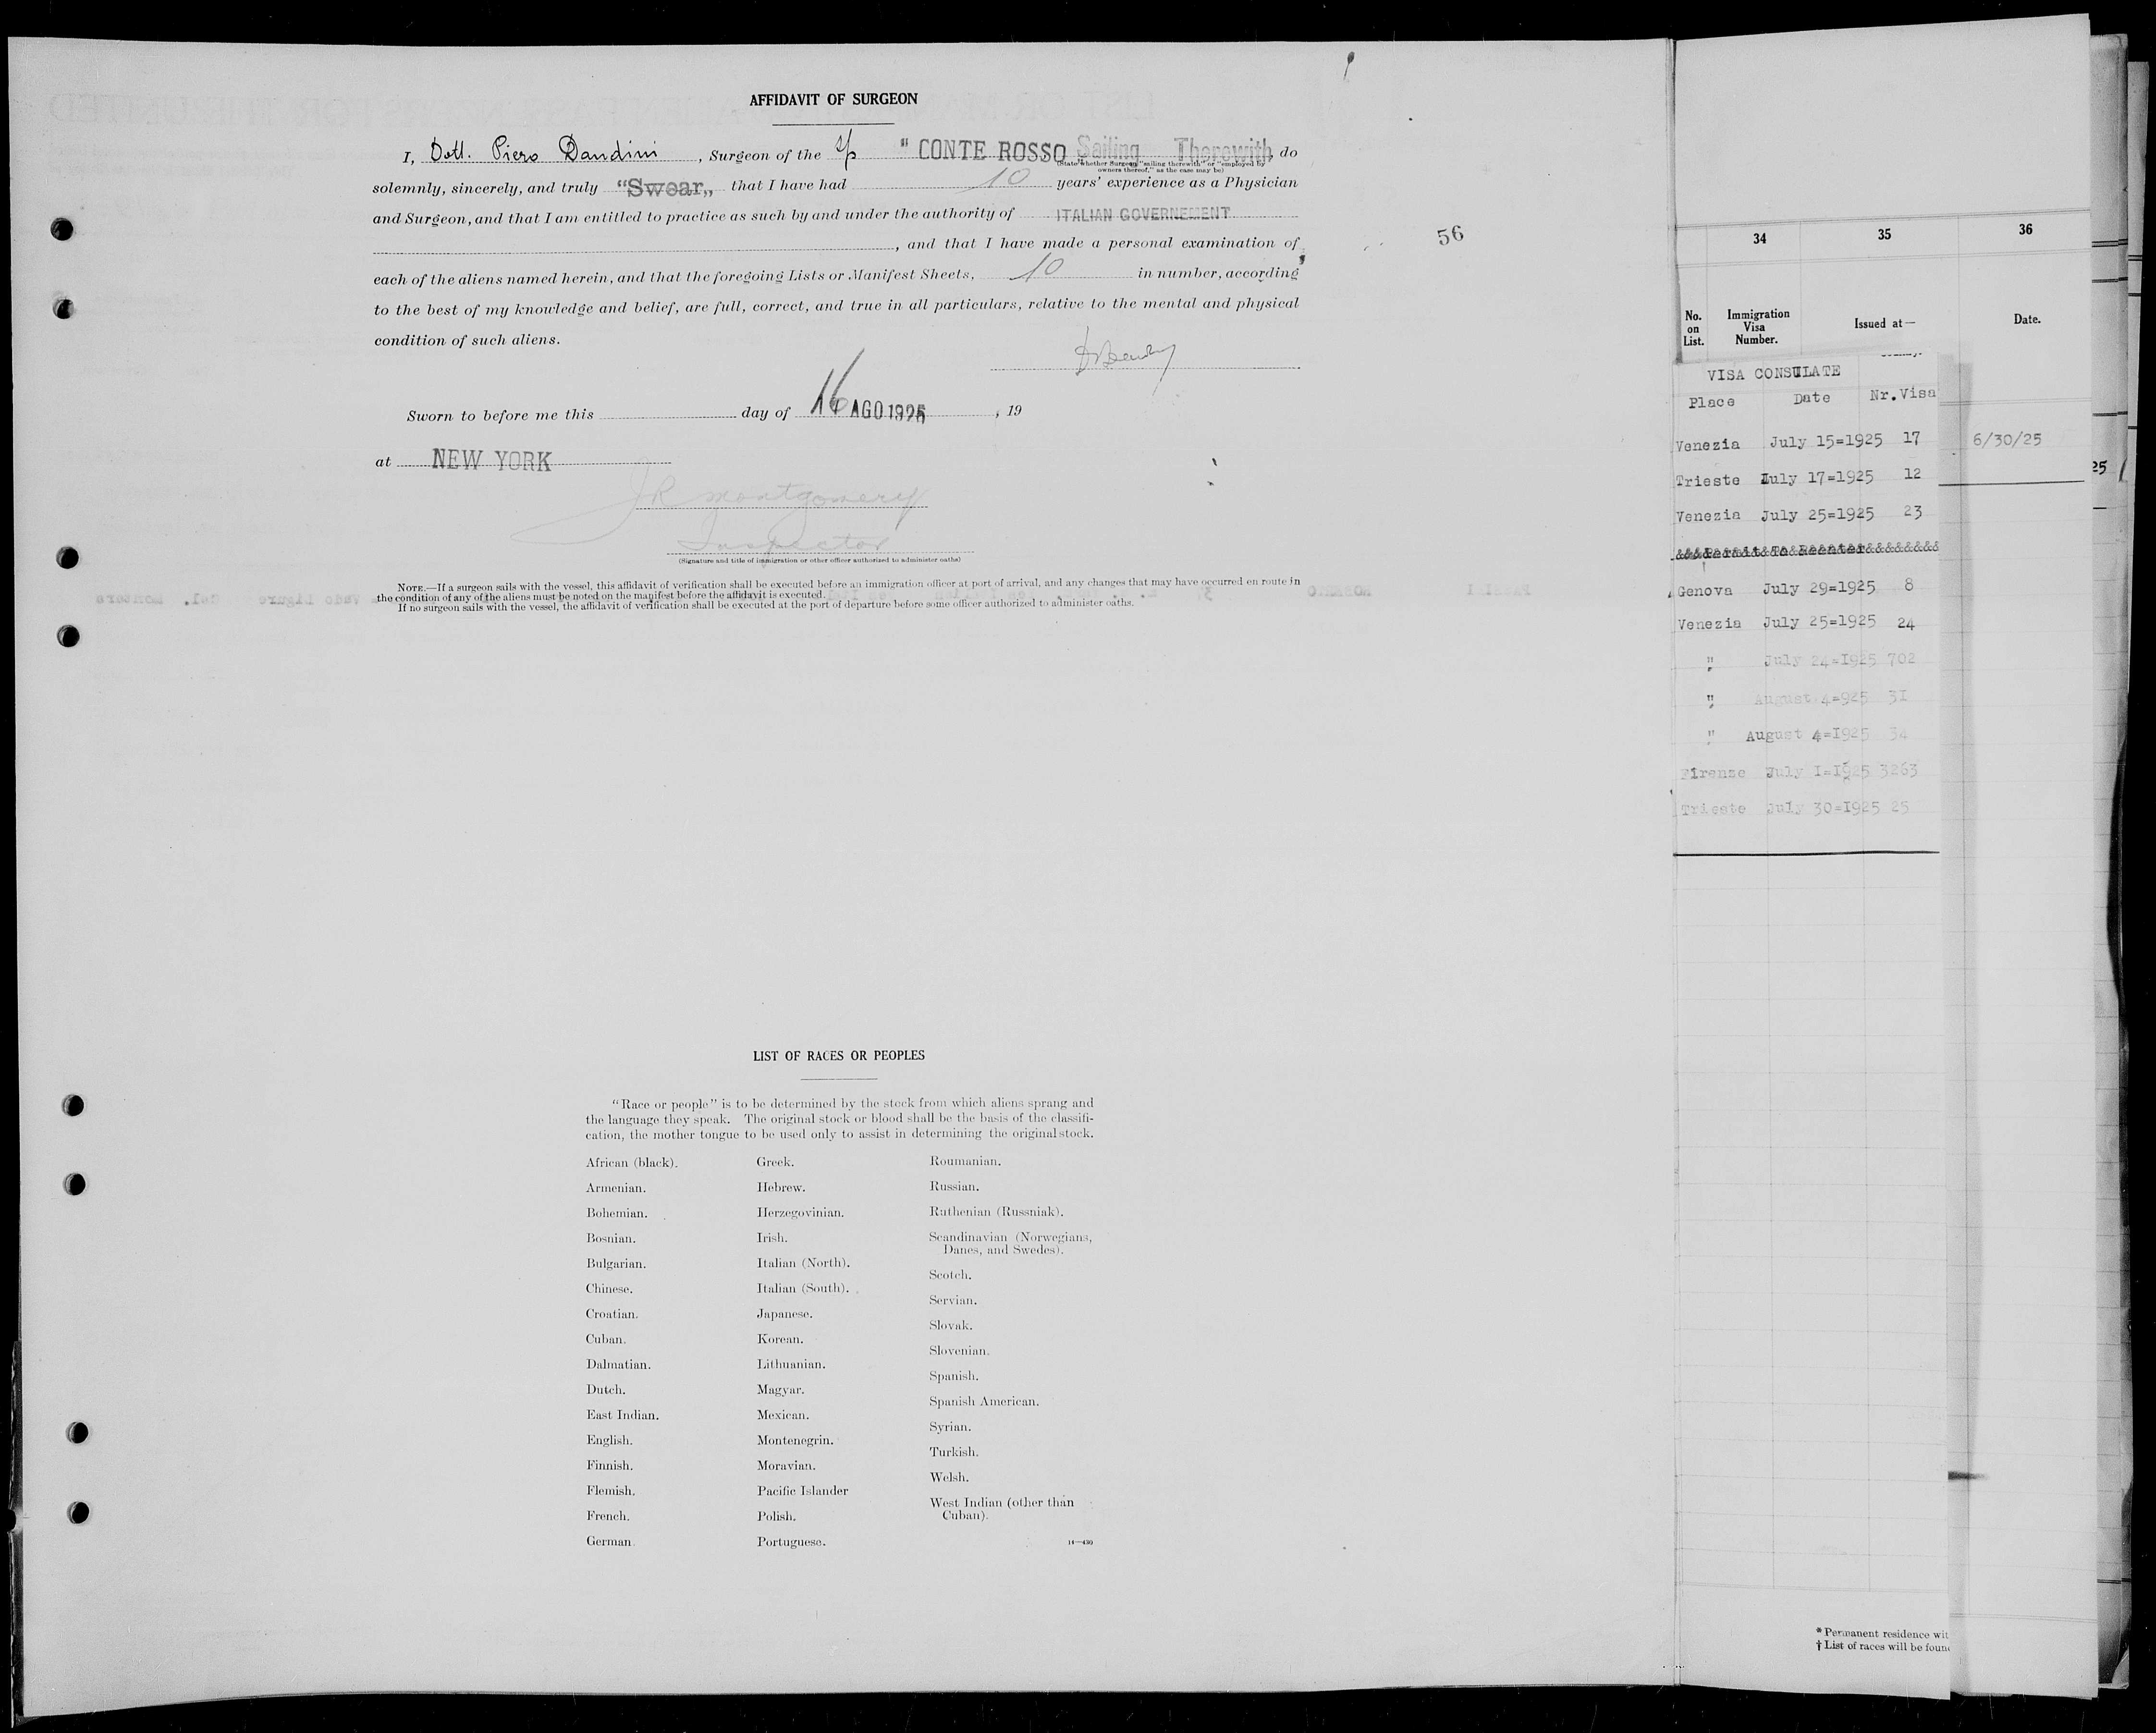 AFFIDAVIT OF SURGEON
I, Dott. Piero Dandini, Surgeon of the S/S "CONTE ROSSO Sailing Therewith, do
(State whether Surgeon "sailing therewith" or "employed by
owners thereof," as the case may be)
solemnly, sincerely, and truly "Swear" that I have had 10 years' experience as a Physician
and Surgeon, and that I am entitled to practice as such by and under the authority of ITALIAN GOVERNEMENT
, and that I have made a personal examination of
each of the aliens named herein, and that the foregoing Lists or Manifest Sheets, 10 in number, according
to the best of my knowledge and belief, are full, correct, and true in all particulars, relative to the mental and physical
condition of such aliens.
Sworn to before me this day of 16 AGO 1925, 19
at NEW YORK
J R Montgomery
Inspector
(Signature and title of immigration or other officer authorized to administer oaths)
NOTE.—If a surgeon sails with the vessel, this affidavit of verification shall be executed before an immigration officer at port of arrival, and any changes that may have occurred en route in
the condition of any of the aliens must be noted on the manifest before the affidavit is executed.
If no surgeon sails with the vessel, the affidavit of verification shall be executed at the port of departure before some officer authorized to administer oaths.
56
LIST OF RACES OR PEOPLES
"Race or people" is to be determined by the stock from which aliens sprang and
the language they speak. The original stock or blood shall be the basis of the classifi-
cation, the mother tongue to be used only to assist in determining the original stock.
African (black).
Armenian.
Bohemian.
Bosnian.
Bulgarian.
Chinese.
Croatian.
Cuban.
Dalmatian.
Dutch.
East Indian.
English.
Finnish.
Flemish.
French.
German.
Greek.
Hebrew.
Herzegovinian.
Irish.
Italian (North).
Italian (South).
Japanese.
Korean.
Lithuanian.
Magyar.
Mexican.
Montenegrin.
Moravian.
Pacific Islander
Polish.
Portuguese.
Roumanian.
Russian.
Ruthenian (Russniak).
Scandinavian (Norwegians,
Danes, and Swedes).
Scotch.
Servian.
Slovak.
Slovenian.
Spanish.
Spanish American.
Syrian.
Turkish.
Welsh.
West Indian (other than
Cuban).
14—430
34 35 36
No.
on
List.
Immigration
Visa
Number.
Issued at—
Date.
VISA CONSULATE
Place Date Nr.Visa
Venezia July 15=1925 17
6/30/25
25
Trieste July 17=1925 12
Venezia July 25=1925 23
&&&Permit To Reenter&&&&&&&&
Genova July 29=1925 8
Venezia July 25=1925 24
" July 24=1925 702
" August 4=925 31
" August 4=1925 34
Firenze July 1=1925 3263
Trieste July 30=1925 25
* Permanent residence wit
† List of races will be foun